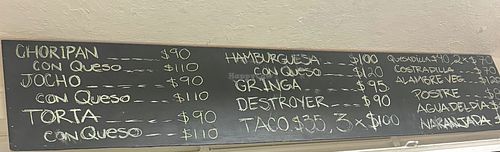 CHORIPAN ____ $90
CON QUESO ____ $110
JOCHO ____ $90
CON QUESO ____ $110
TORTA ____ $90
CON QUESO ____ $110
HAMBURGUESA ____ $100
CON QUESO ____ $120
GRINGA ____ $95
DESTROYER ____ $90
TACO $35, 3 x $100
QUESADILLA $40, 2 x $70
COSTRADILLA ____
ALAMBRE VEG.
POSTRE
AGUA DEL DÍA
NARANJADA